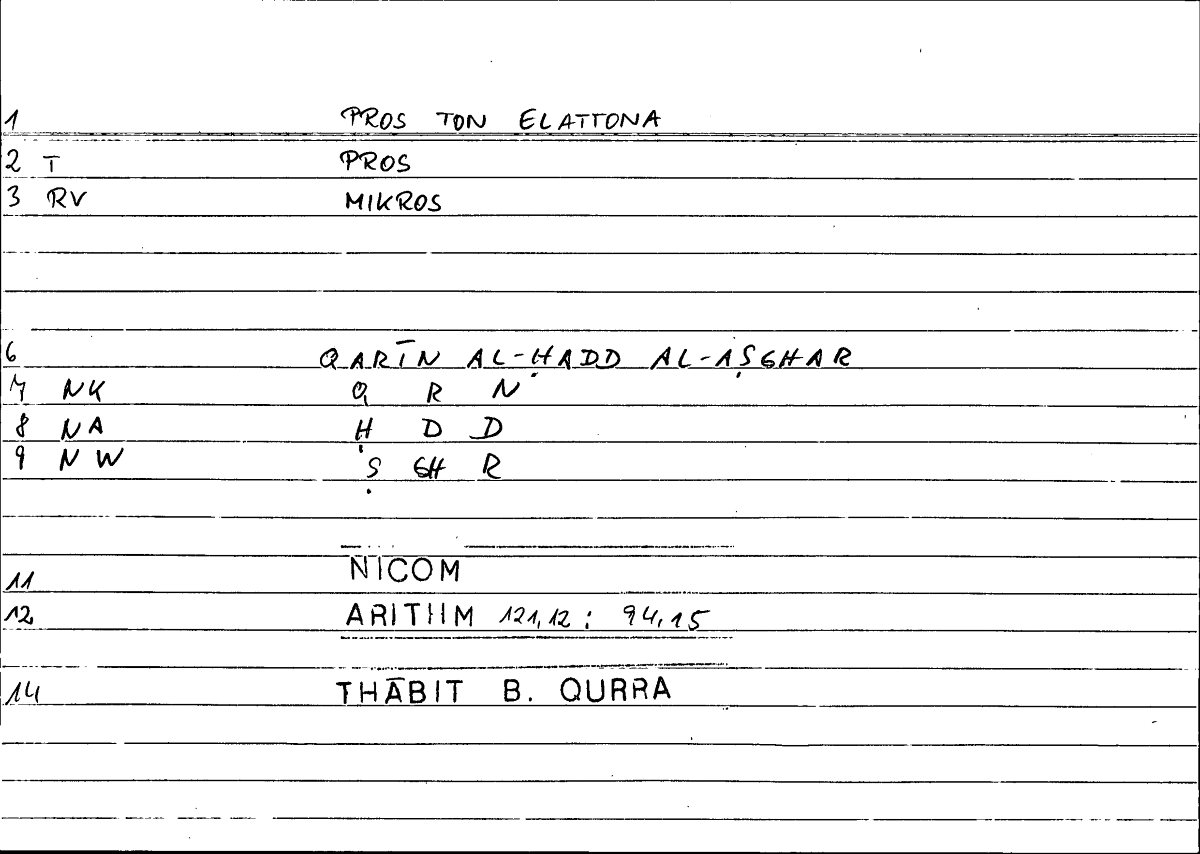 1 PROS TON ELATTONA
2 T PROS
3 RV MIKROS
6 QARĪN AL-ḤADD AL-AṢGHAR
7 NK Q R N
8 NA Ḥ D D
9 NW Ṣ GH R
11 NICOM
12 ARITHM 121,12 : 94,15
14 THĀBIT B. QURRA